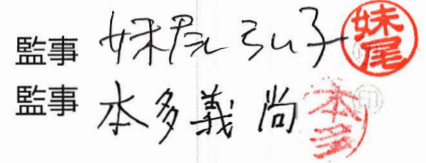 監事 妹尾 弘子 妹尾
監事 本多 義尚 本多